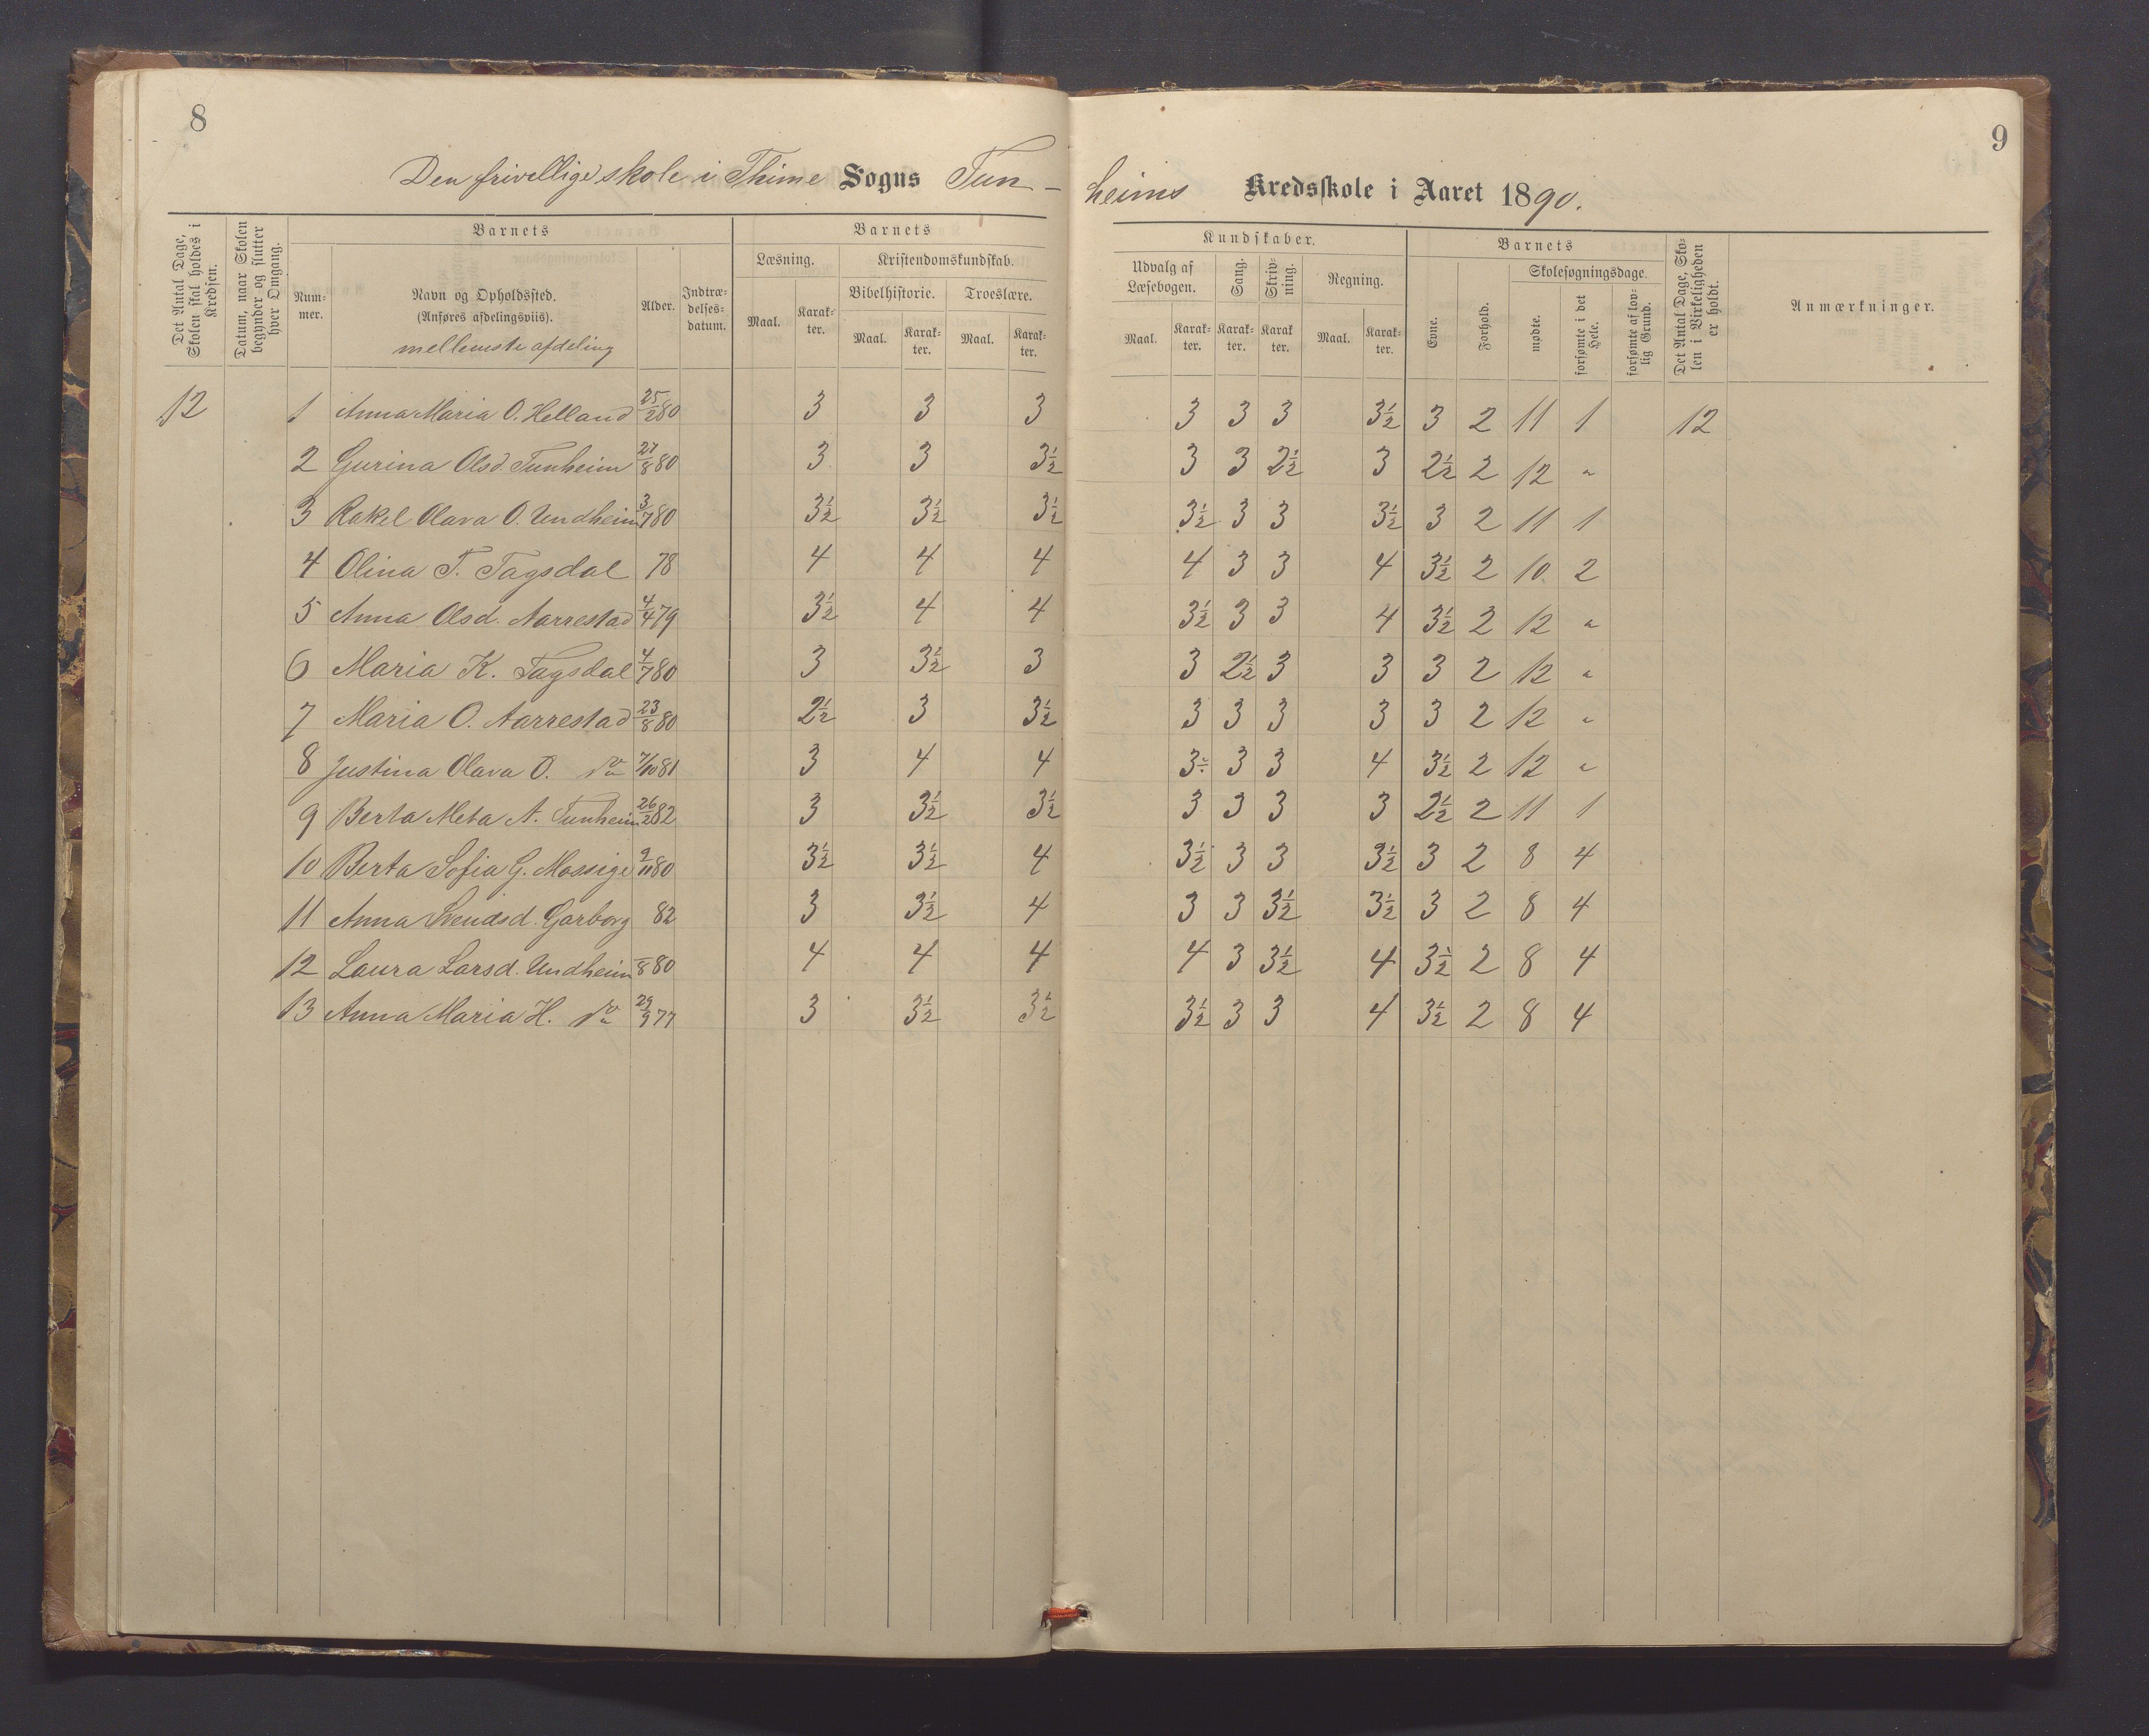 8
9
Den frivillige skole i Thime Sogns Tun-
heims Kredsskole i Aaret 1890.
Det Antal Dage, Skolen skal holdes i Kredsen.
Datum, naar Skolen begynder og slutter hver Omgang.
Barnets
Nummer.
Navn og Opholdssted.
(Anføres afdelingsviis).
mellemste afdeling
Alder.
Indtrædelses-datum.
Barnets
Læsning. Kristendomskundskab.
Bibelhistorie. Troeslære.
Maal. Karakter. Maal. Karakter. Maal. Karakter.
Kundskaber.
Udvalg af Læsebogen. Sang. Skrivning. Regning.
Maal. Karakter. Karakter. Karakter. Maal. Karakter.
Barnets
Evne. Forhold. Skolesøgningsdage.
mødte. forsømte i det Hele. forsømte af lovlig Grund.
Det Antal Dage, Skolen i Virkeligheden er holdt.
Anmærkninger.
12 1 Anna Maria O. Helland 25/2 80 3 3 3 3 3 3 3½ 3 2 11 1 12
2 Gurina Olsd. Tunheim 27/8 80 3 3 3½ 3 3 2½ 3 2½ 2 12 "
3 Rakel Olava O. Undheim 3/7 80 3½ 3½ 3½ 3½ 3 3 3½ 3 2 11 1
4 Olina T. Tagsdal 78 4 4 4 4 3 3 4 3½ 2 10 2
5 Anna Olsd. Aarrestad 4/4 79 3½ 4 4 3½ 3 3 4 3½ 2 12 "
6 Maria K. Tagsdal 4/7 80 3 3½ 3 3 2½ 3 3 3 2 12 "
7 Maria O. Aarrestad 23/8 80 2½ 3 3½ 3 3 3 3 3 2 12 "
8 Justina Olava O. do 7/10 81 3 4 4 3 3 3 4 3½ 2 12 "
9 Berta Meta A. Tunheim 26/2 82 3 3½ 3½ 3 3 3 3 2½ 2 11 1
10 Berta Sofia G. Mossige 9/11 80 3½ 3½ 4 3½ 3 3 3½ 3 2 8 4
11 Anna Svendsd. Garborg 82 3 3½ 4 3 3 3½ 3½ 3 2 8 4
12 Laura Larsd. Undheim –/8 80 4 4 4 4 3 3½ 4 3½ 2 8 4
13 Anna Maria H. do 29/9 77 3 3½ 3½ 3½ 3 3 4 3½ 2 8 4